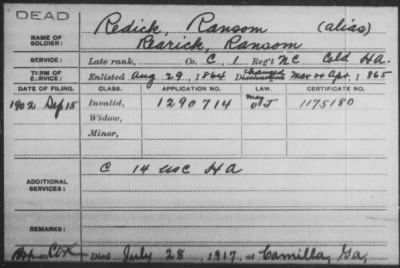 DEAD
NAME OF SOLDIER: Redick, Ransom (alias)
Rearick, Ransom
SERVICE: Late rank, Co. C, 1 Reg't NC Cold HA.
TERM OF SERVICE: Enlisted Aug 29, 1864 Discharged Mar or Apr, 1865
DATE OF FILING. CLASS. APPLICATION NO. LAW. CERTIFICATE NO.
1902 Sep 15 Invalid, 1290714 1175180
Widow,
Minor,
ADDITIONAL SERVICES: C 14 USC HA
REMARKS:
Died July 28, 1917, at Camilla, Ga,